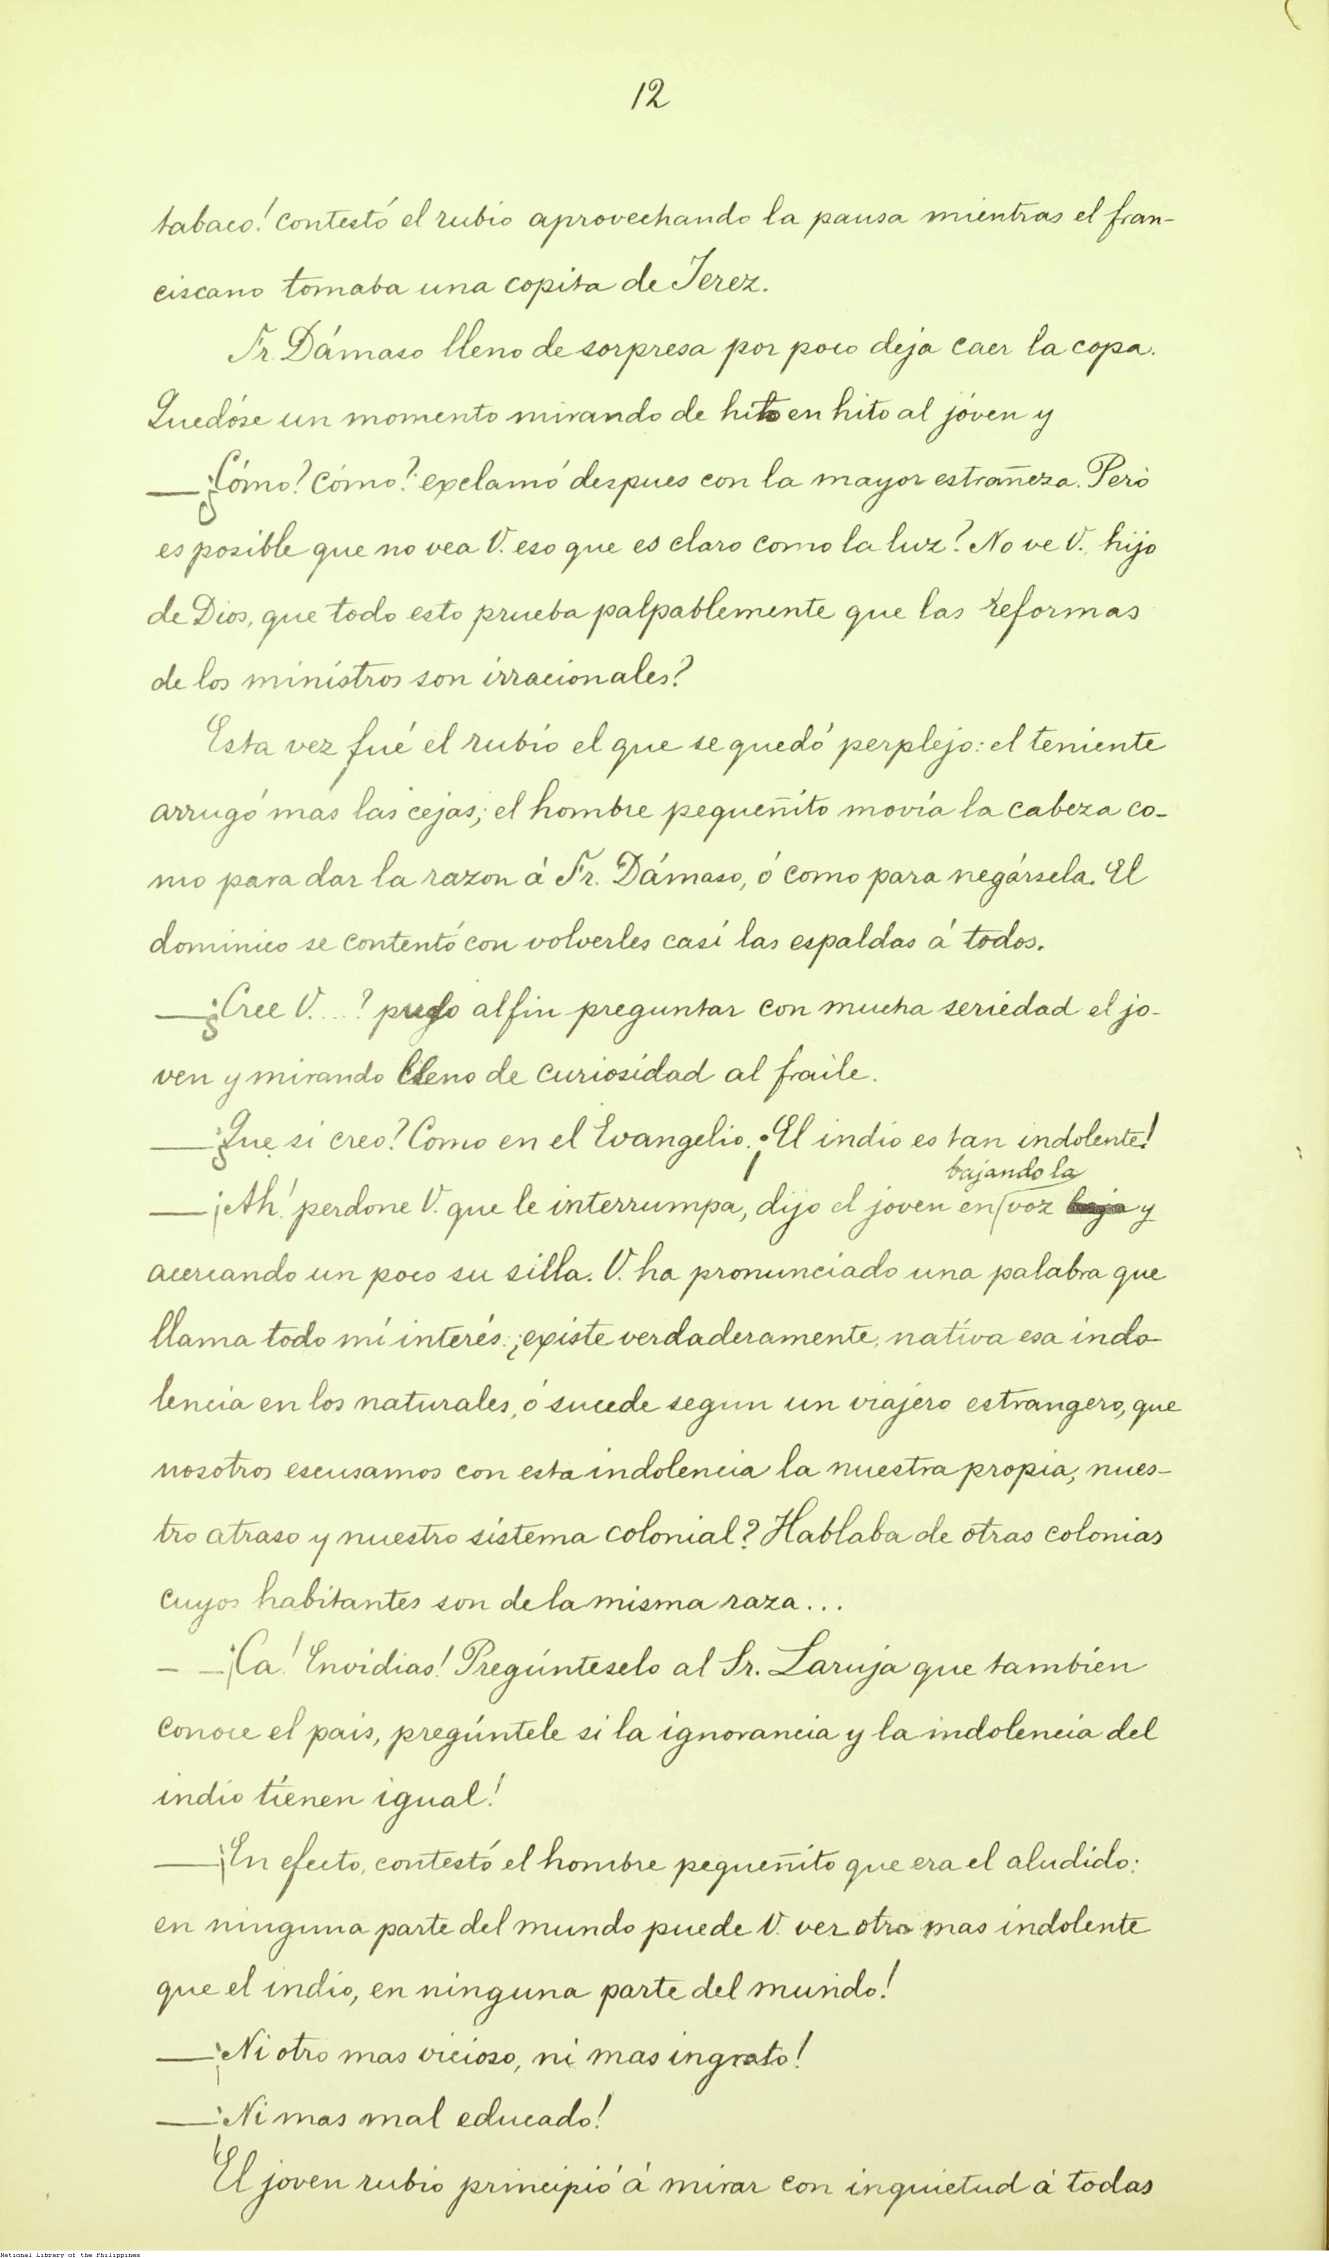 12
tabaco! contestó el rubio aprovechando la pausa mientras el fran-
ciscano tomaba una copita de Jerez.
Fr. Dámaso lleno de sorpresa por poco deja caer la copa.
Quedóse un momento mirando de hito en hito al jóven y
—¿Cómo? cómo? exclamó despues con la mayor estrañeza. Pero
es posible que no vea V. eso que es claro como la luz? No ve V. hijo
de Dios, que todo esto prueba palpablemente que las reformas
de los ministros son irracionales?
Esta vez fué el rubio el que se quedó perplejo: el teniente
arrugó mas las cejas; el hombre pequeñito movía la cabeza co-
mo para dar la razon á Fr. Dámaso, ó como para negársela. El
dominico se contentó con volverles casi las espaldas á todos.
—¿Cree V....? pudo al fin preguntar con mucha seriedad el jo-
ven y mirando lleno de curiosidad al fraile.
—¿Que si creo? Como en el Evangelio. ¡El indio es tan indolente!
bajando la
—¡Ah! perdone V. que le interrumpa, dijo el joven en voz y
acercando un poco su silla. V. ha pronunciado una palabra que
llama todo mi interés: ¿existe verdaderamente, nativa esa indo-
lencia en los naturales, ó sucede segun un viajero estrangero, que
nosotros escusamos con esta indolencia la nuestra propia, nues-
tro atraso y nuestro sistema colonial? Hablaba de otras colonias
cuyos habitantes son de la misma raza...
—¡Ca! Envidias! Pregúnteselo al Sr. Laruja que tambien
conoce el pais, pregúntele si la ignorancia y la indolencia del
indio tienen igual!
—¡En efecto, contestó el hombre pequeñito que era el aludido:
en ninguna parte del mundo puede V. ver otro mas indolente
que el indio, en ninguna parte del mundo!
—¡Ni otro mas vicioso, ni mas ingrato!
—¡Ni mas mal educado!
El joven rubio principió á mirar con inquietud á todas
National Library of the Philippines